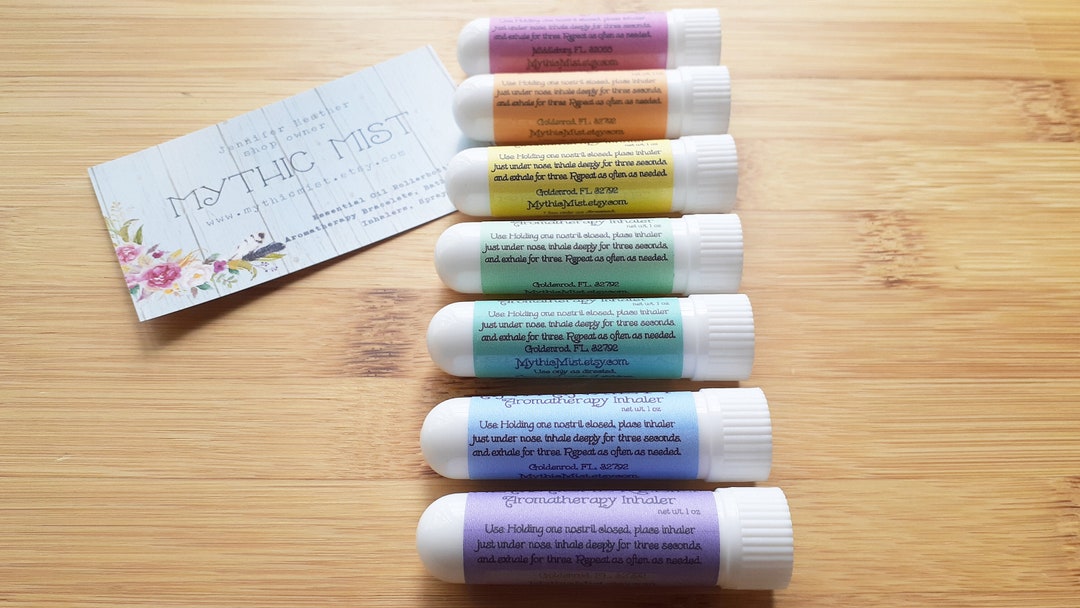 Jennifer Heather
shop owner
MYTHIC MIST
www.mythicmist.etsy.com
Essential Oil Rollerball
Aromatherapy Bracelets,
Inhalers,
Use: Holding one nostril closed, place inhaler
just under nose, inhale deeply for three seconds,
and exhale for three. Repeat as often as needed.
Middleburg, FL.
MythicMist.etsy.com
Use: Holding one nostril closed, place inhaler
just under nose, inhale deeply for three seconds,
and exhale for three. Repeat as often as needed.
Goldenrod, FL. 32792
MythicMist.etsy.com
Use: Holding one nostril closed, place inhaler
just under nose, inhale deeply for three seconds,
and exhale for three. Repeat as often as needed.
Goldenrod, FL. 32792
MythicMist.etsy.com
Use only as directed.
net wt. 1 oz
Use: Holding one nostril closed, place inhaler
just under nose, inhale deeply for three seconds,
and exhale for three. Repeat as often as needed.
Goldenrod, FL. 32792
Aromatherapy Inhaler
net wt. 1 oz
Use: Holding one nostril closed, place inhaler
just under nose, inhale deeply for three seconds,
and exhale for three. Repeat as often as needed.
Goldenrod, FL. 32792
MythicMist.etsy.com
Use only as directed.
Aromatherapy Inhaler
net wt. 1 oz
Use: Holding one nostril closed, place inhaler
just under nose, inhale deeply for three seconds,
and exhale for three. Repeat as often as needed.
Goldenrod, FL. 32792
MythicMist.etsy.com
Aromatherapy Inhaler
net wt. 1 oz
Use: Holding one nostril closed, place inhaler
just under nose, inhale deeply for three seconds,
and exhale for three. Repeat as often as needed.
Goldenrod, FL. 32792
MythicMist.etsy.com